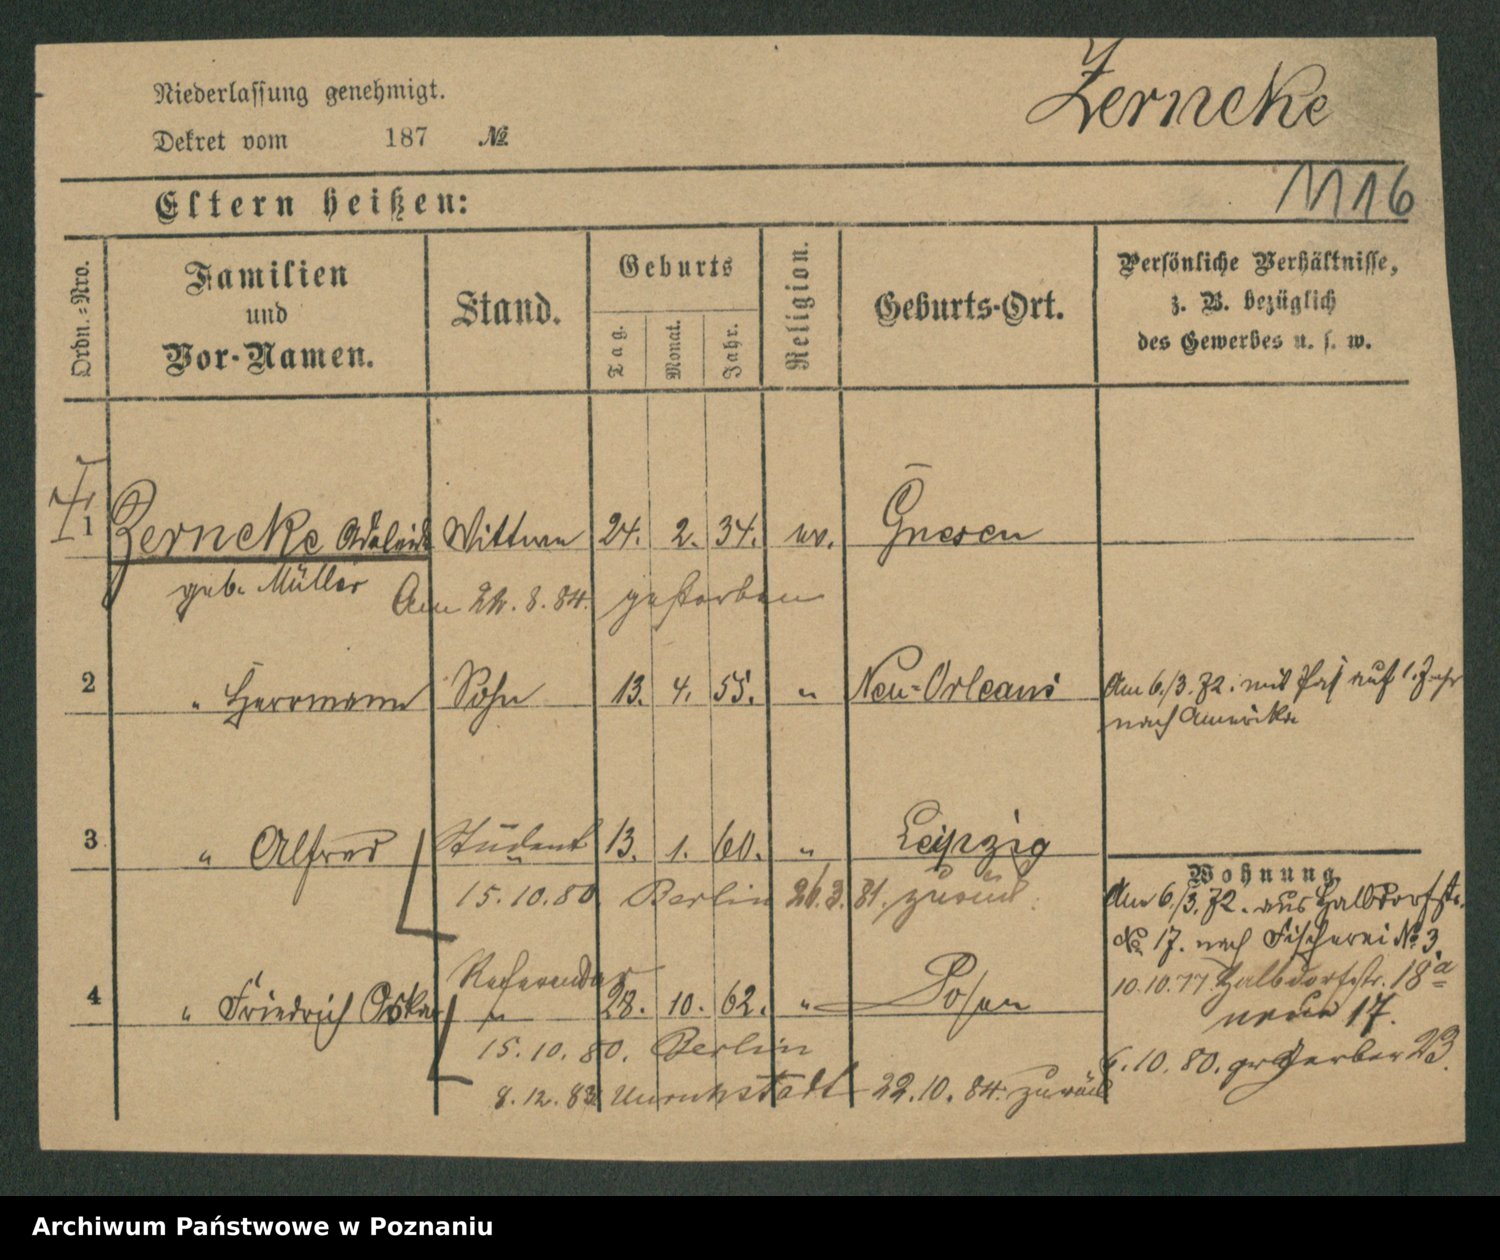 Niederlassung genehmigt.
Zerneke
Dekret vom 187 №
1116
Eltern heißen:
Ordn.-Nro.
Familien
und
Vor-Namen.
Stand.
Geburts
Tag.
Monat.
Jahr.
Religion.
Geburts-Ort.
Persönliche Verhältnisse,
z. B. bezüglich
des Gewerbes u. s. w.
1 Zerneke Adelaide Wittwe 24. 2. 34. ev. Gnesen
geb. Müller Am 22. 8. 84. gestorben
2 " Herrmann Sohn 13. 4. 55. " Neu-Orleans Am 6./3. 72. mit Paß auf 1. Jahr
nach Amerika
3 " Alfred Student 13. 1. 60. " Leipzig
15. 10. 80. Berlin 26. 3. 81. zurück.
Wohnung.
Am 6./3. 72. aus Halbdorfstr.
№ 17. nach Fischerei № 3.
4 " Friedrich Oskar Referendar 28. 10. 62. " Posen
10.10.77 Halbdorfstr. 18a
neue 17.
15. 10. 80. Berlin
6. 10. 80. gr Gerber 23.
8. 12. 83 Unruhstadt 22. 10. 84. zurück
Archiwum Państwowe w Poznaniu